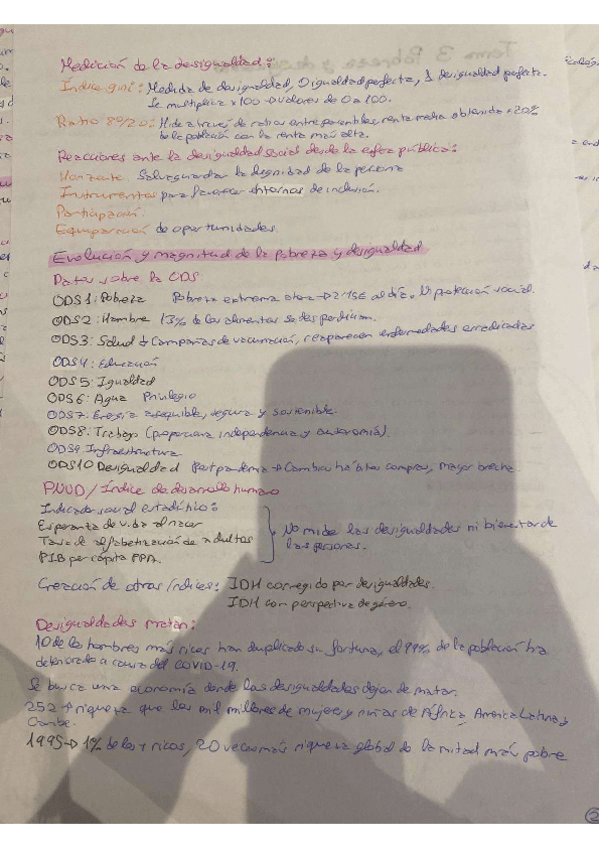 Medición de la desigualdad:
Índice gini: Medida de desigualdad, 0 igualdad perfecta, 1 desigualdad perfecta.
Se multiplica x100 → valores de 0 a 100.
Ratio 80/20: Mide a través de ratios entre percentiles, renta media obtenida + 20%
de la población con la renta más alta.
Reacciones ante la desigualdad social desde la esfera pública:
Horizonte: Salvaguardar la dignidad de la persona
Instrumentos para favorecer entornos de inclusión.
Participación.
Equiparación de oportunidades.
Evolución y magnitud de la pobreza y desigualdad
Datos sobre la ODS
ODS1: Pobreza Pobreza extrema ahora → 2'15€ al día. Ni protección social.
ODS2: Hambre 13% de los alimentos se desperdician.
ODS3: Salud + Campañas de vacunación, reaparecen enfermedades erradicadas
ODS4: Educación
ODS5: Igualdad
ODS6: Agua Privilegio
ODS7: Energía asequible, segura y sostenible.
ODS8: Trabajo (proporciona independencia y autonomía).
ODS9 Infraestructura
ODS10 Desigualdad Postpandemia → Cambios hábitos compras, mayor brecha.
PNUD / Índice de desarrollo humano
Indicador social estadístico:
Esperanza de vida al nacer
Tasa de alfabetización de adultos
PIB per cápita PPA.
No mide las desigualdades ni bienestar de
las personas.
Creación de otros índices: IDH corregido por desigualdades.
IDH con perspectiva de género.
Desigualdades matan:
10 de los hombres más ricos han duplicado su fortuna, el 99% de la población ha
deteriorado a causa del COVID-19.
Se busca una economía donde las desigualdades dejen de matar.
252 + riqueza que los mil millones de mujeres y niñas de África, América Latina y
Caribe.
1995 → 1% de los + ricos, 20 veces más riqueza global de la mitad más pobre
2